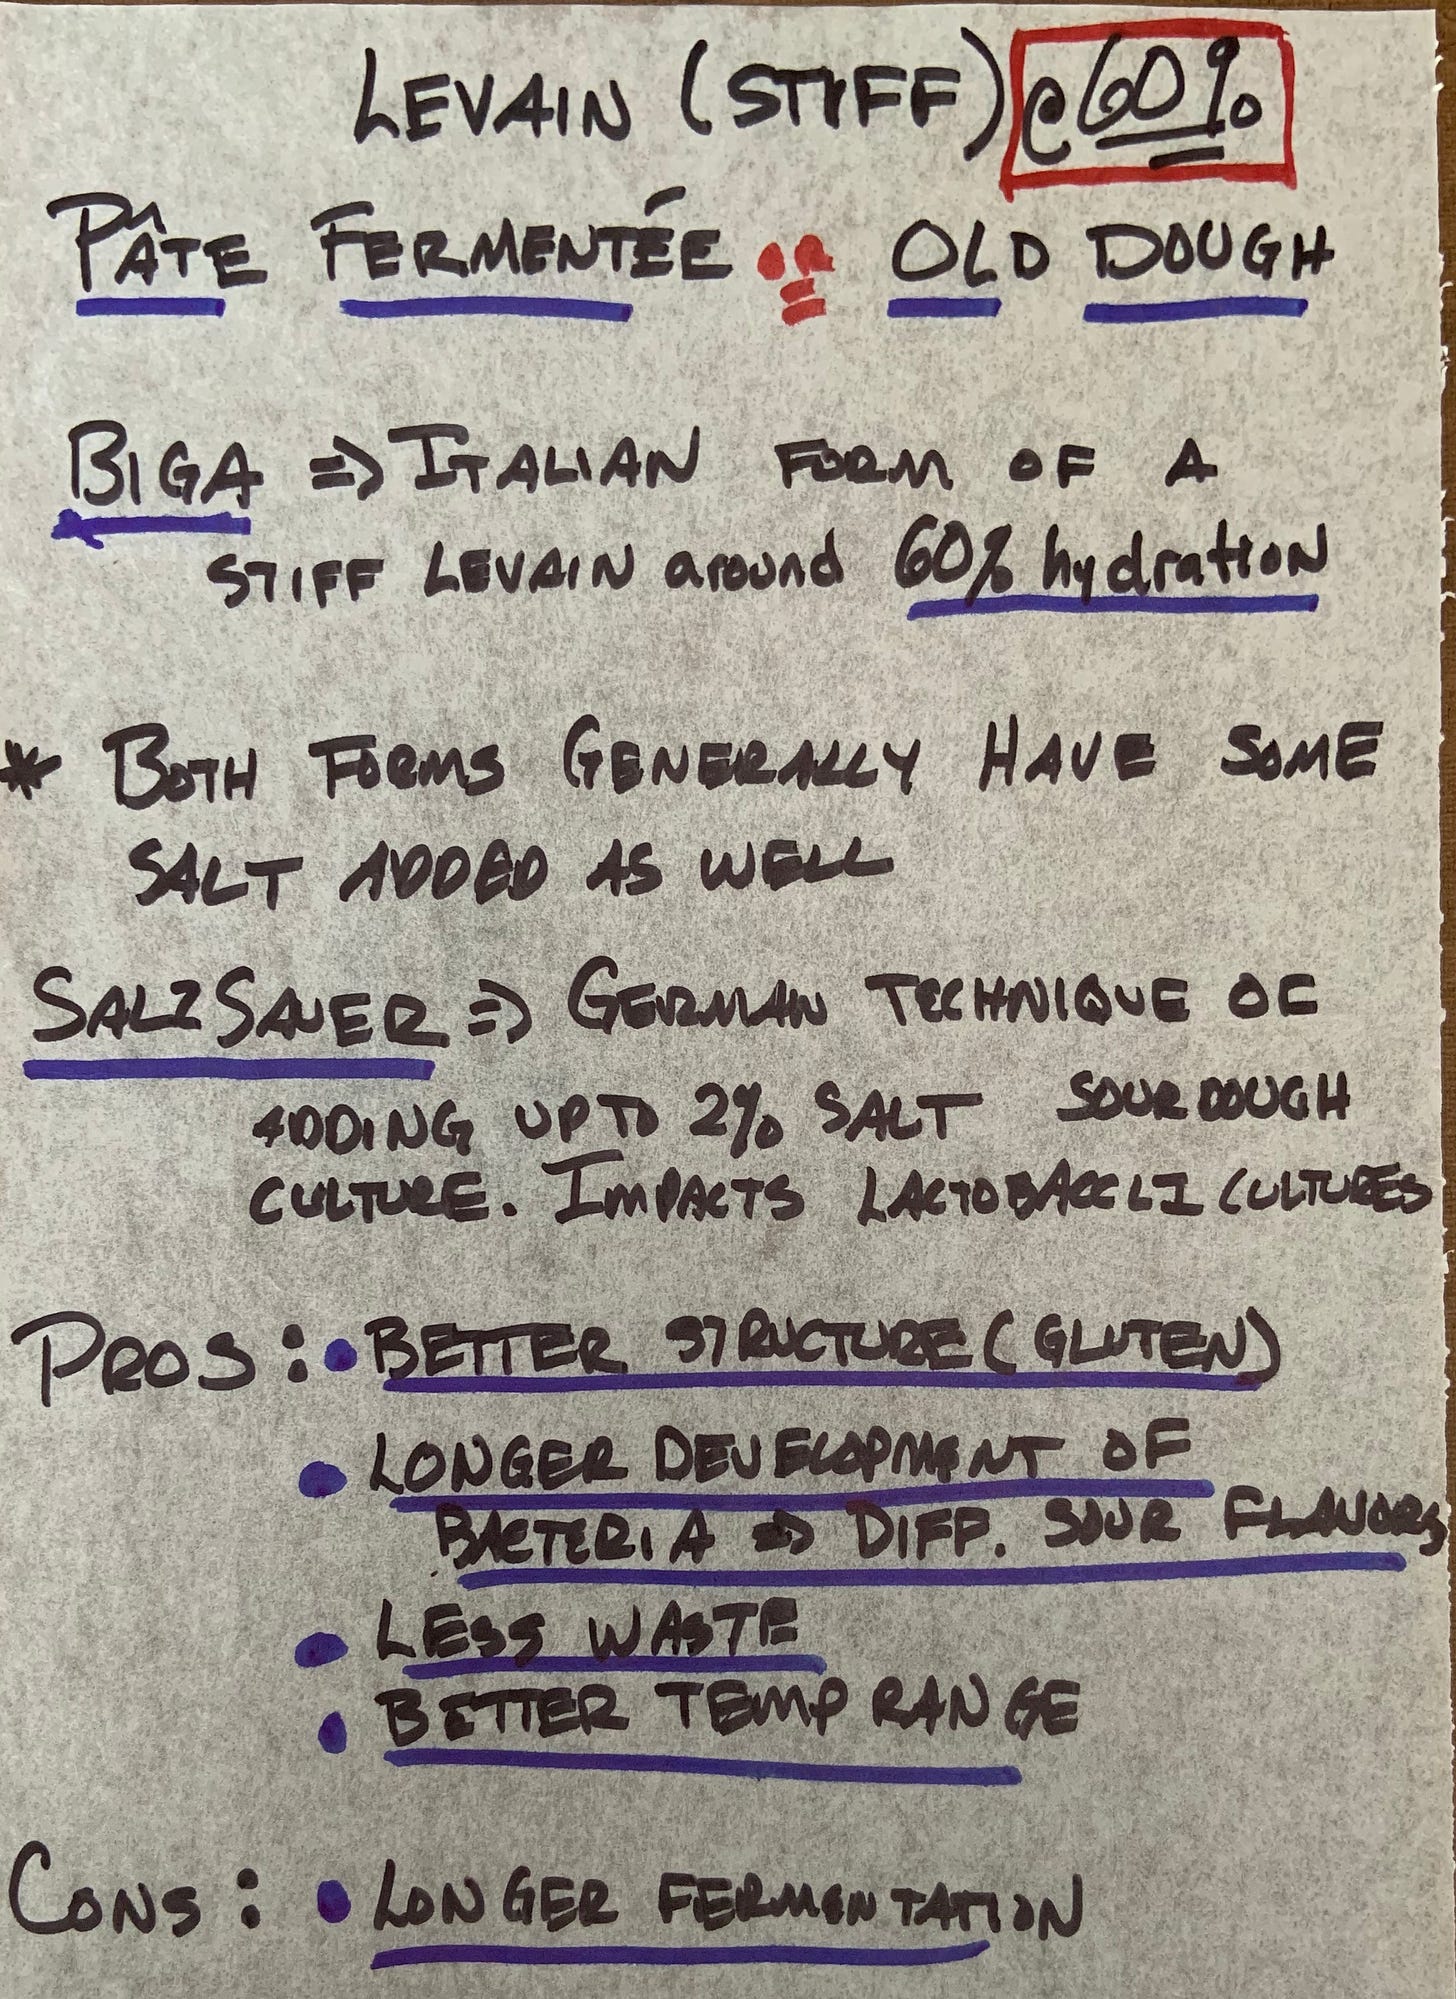 LEVAIN (STIFF) @60%
PÂTE FERMENTÉE OLD DOUGH
BIGA => ITALIAN FORM OF A
STIFF LEVAIN around 60% hydration
* BOTH FORMS GENERALLY HAVE SOME
SALT ADDED AS WELL
SALZSAUER => GERMAN TECHNIQUE OF
ADDING UP TO 2% SALT SOURDOUGH
CULTURE. IMPACTS LACTOBACCLI CULTURES
PROS: • BETTER STRUCTURE (GLUTEN)
• LONGER DEVELOPMENT OF
BACTERIA => DIFF. SOUR FLAVORS
• LESS WASTE
• BETTER TEMP RANGE
CONS: • LONGER FERMENTATION